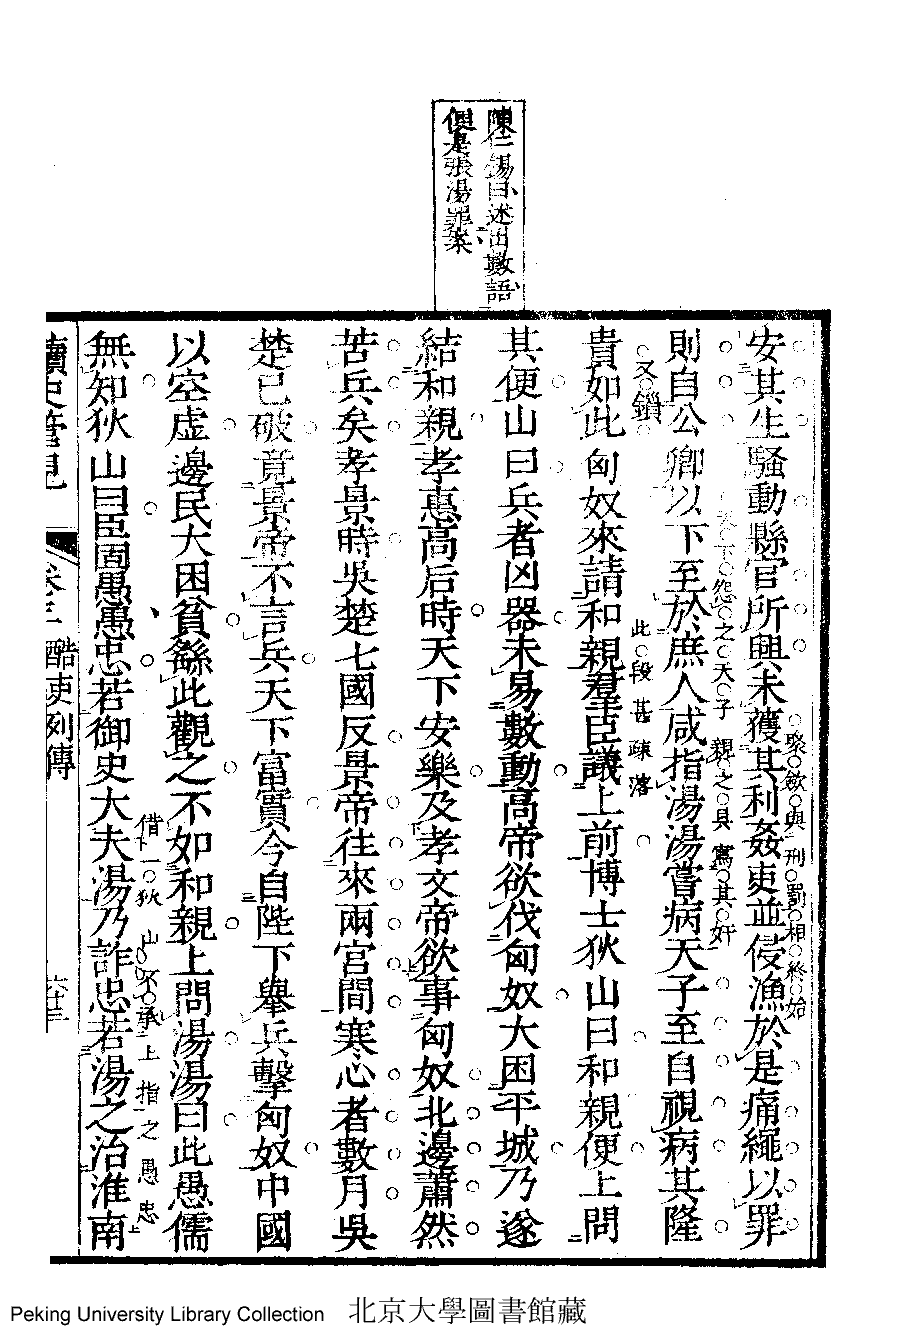 陳仁錫曰述出數語
便是張湯罪案
安其生騷動縣官所興未獲其利姦吏並侵漁於是痛繩以罪
聚歛與刑罰相終始
則自公卿以下至於庶人咸指湯湯嘗病天子至自視病其隆
下怨之天子親之具寫其奸
又鎖
貴如此匈奴來請和親羣臣議上前博士狄山曰和親便上問
此段甚疎落
其便山曰兵者凶器未易數動高帝欲伐匈奴大困平城乃遂
結和親孝惠高后時天下安樂及孝文帝欲事匈奴北邊蕭然
苦兵矣孝景時吳楚七國反景帝往來兩宮間寒心者數月吳
楚已破竟景帝不言兵天下富實今自陛下舉兵擊匈奴中國
以空虛邊民大困貧繇此觀之不如和親上問湯湯曰此愚儒
無知狄山曰臣固愚愚忠若御史大夫湯乃詐忠若湯之治淮南
借一狄山不承上指之愚忠
讀史管見
卷三 酷吏列傳
六十三
Peking University Library Collection 北京大學圖書館藏